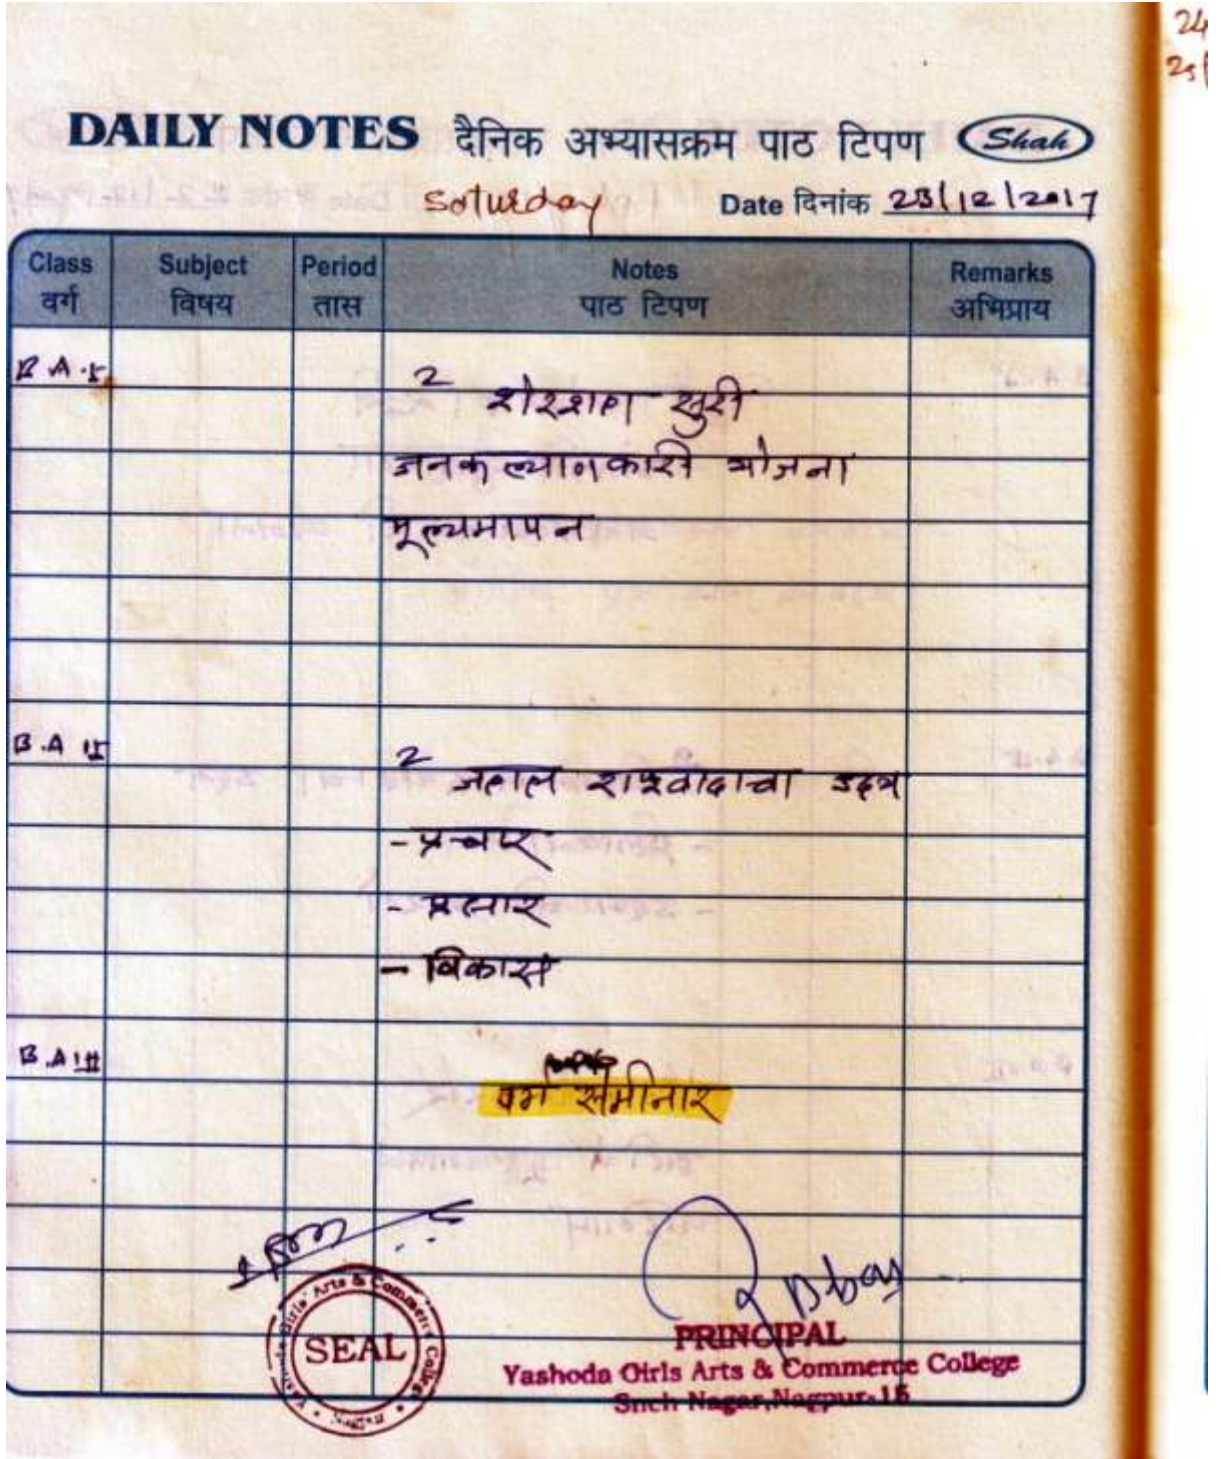 24
25/
DAILY NOTES दैनिक अभ्यासक्रम पाठ टिपण Shah
Saturday Date दिनांक 23/12/2017
Class Subject Period Notes Remarks
वर्ग विषय तास पाठ टिपण अभिप्राय
B A.I 2
शेरशहा सुरी
जनकल्याणकारी योजना
मूल्यमापन
B.A II 2
जहाल राष्ट्रवादाचा उदय
- प्रचार
- प्रसार
- विकास
B.A III
वर्ग सेमीनार
Yashoda Girls' Arts & Commerce College
SEAL
Nagpur
PRINCIPAL
Yashoda Girls Arts & Commerce College
Sneh Nagar, Nagpur-15